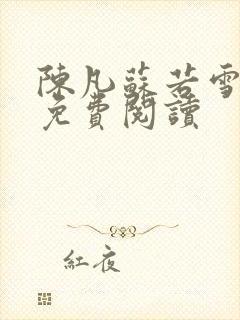 陳凡蘇若雪
免費閱讀
紅夜